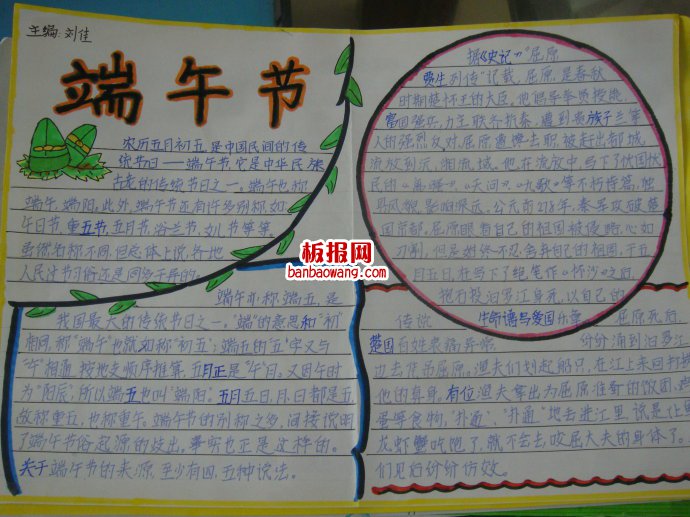 主编:刘佳
端午节
农历五月初五,是中国民间的传
统节日——端午节,它是中华民族
古老的传统节日之一。端午也称
端午,端阳。此外,端午节还有许多别称,如:
午日节,重五节,五月节,浴兰节,
虽然名称不同,但总体上说,各地
人民过节习俗还是同多于异的。
端午亦称端五,是
我国最大的传统节日之一,"端"的意思和"初"
相同,称"端午"也就如称"初五";端五的"五"字又与
"午"相通,按地支顺序推算,五月正是"午"月。又因午时
为"阳辰",所以端五也叫"端阳"。五月五日,月、日都是五
故称重五,也称重午。端午节的别称之多,间接说明
了端午节俗起源的歧出。事实也正是这样的。
关于端午节的来源,至少有四、五种说法。
据《史记》"屈原
贾生列传"记载,屈原,是春秋
时期楚怀王的大臣。他倡导举贤授能,
富国强兵,力主联齐抗秦,遭到
人的强烈反对,屈原遭馋去职,被赶出都城,
流放到沅、湘流域。他在流放中,写下了忧国忧
民的《离骚》、《天问》、《九歌》等不朽诗篇,独
具风貌,影响深远。公元前278年,秦军攻破楚
国京都。屈原眼看自己的祖国被侵略,心如
刀割,但是始终不忍舍弃自己的祖国,于五
月五日,在写下了绝笔作《怀沙》之后,
抱石投汨罗江身死,以自己的
传说
屈原死后,
楚国百姓哀痛异常
纷纷涌到汨罗江
边去凭吊屈原。渔夫们划起船只,在江上来回打捞
他的真身。有位渔夫拿出为屈原准备的饭团、鸡
蛋等食物,"扑通、扑通"地丢进江里,说是让鱼
龙虾蟹吃饱了,就不会去咬屈大夫的身体了。
们见后纷纷仿效。
板报网
banbaowang.com